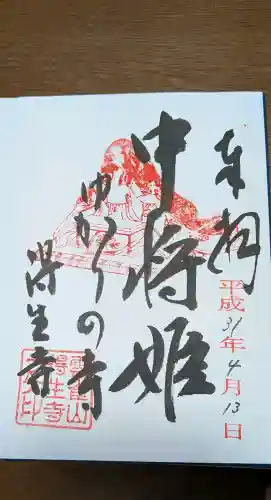 奉拝
平成31年4月13日
中将姫
ゆかりの寺
得生寺
雲雀山
得生寺
印